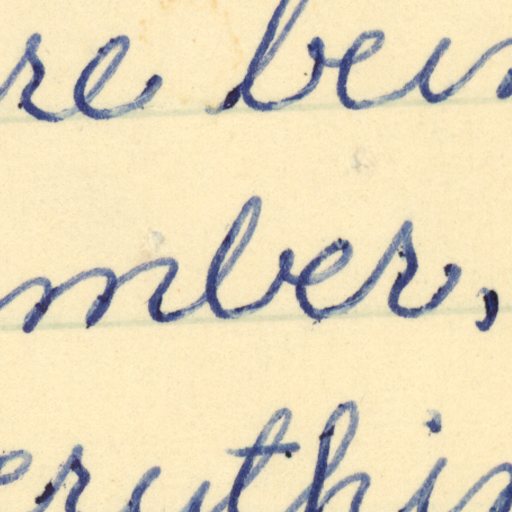 re bein
mber,
erythin